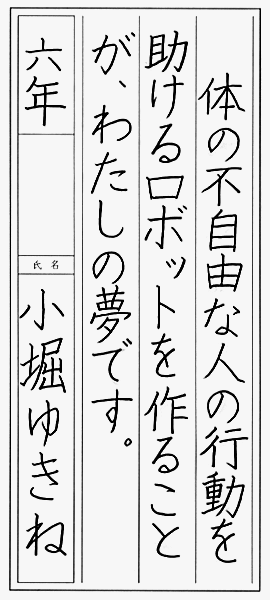 体の不自由な人の行動を
助けるロボットを作ること
が、わたしの夢です。
六年
氏名
小堀ゆきね